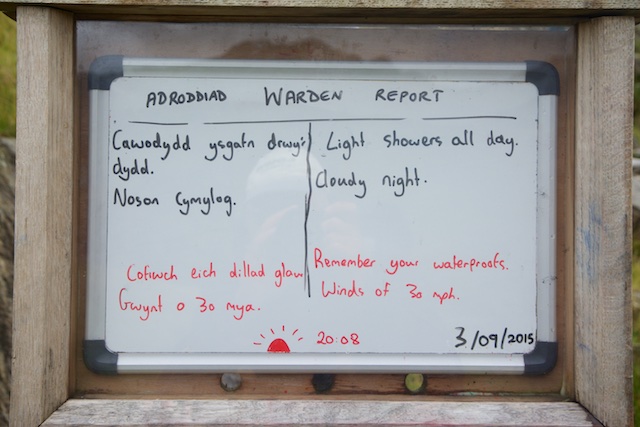 ADRODDIAD WARDEN REPORT
Cawodydd ysgafn drwy'r
dydd.
Noson Cymylog.
Light showers all day.
Cloudy night.
Cofiwch eich dillad glaw
Gwynt o 30 mya.
Remember your waterproofs.
Winds of 30 mph.
20:08
3/09/2015